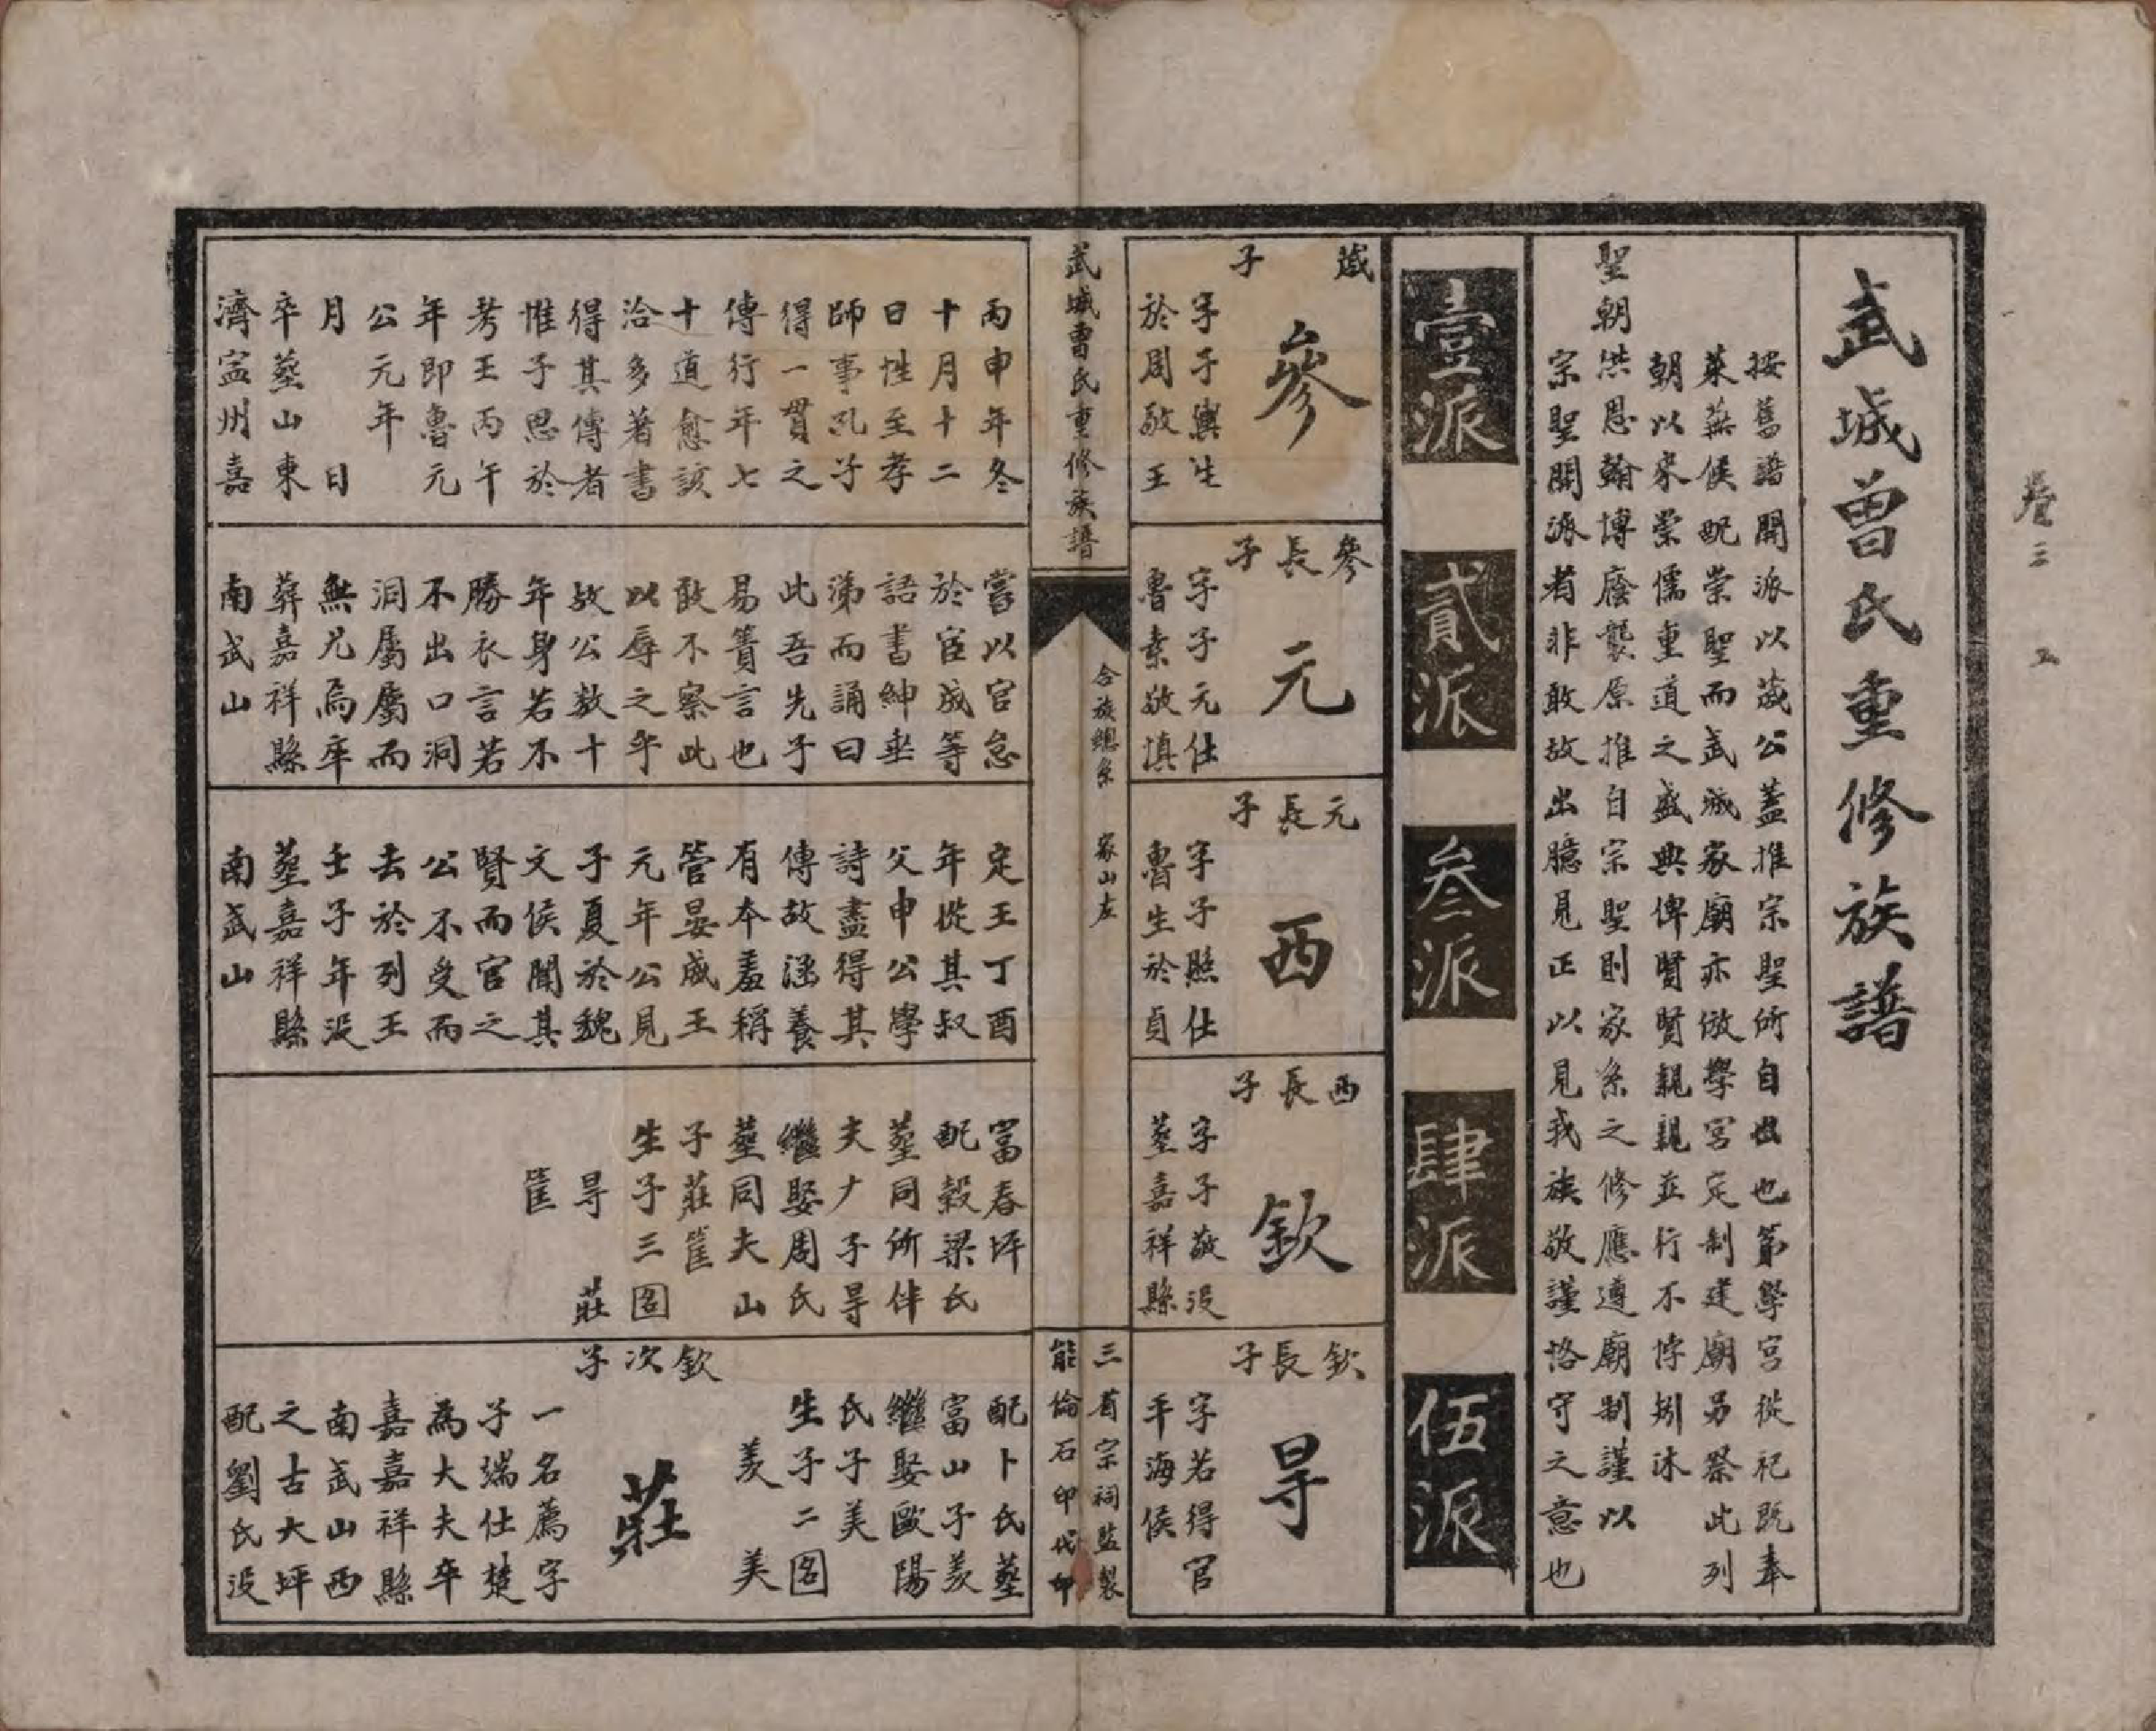 武城曾氏重修族譜
按舊譜開派以蒧公蓋推宗聖所自出也第學宮從祀既奉
萊蕪侯配崇聖而武城家廟亦倣學宮定制建廟另祭此列
朝以來崇儒重道之盛典俾賢賢親親並行不悖矧沐
聖朝洪恩翰博廕襲原推自宗聖則家系之修應遵廟制謹以
宗聖開派者非敢故出臆見正以見我族敬謹恪守之意也
壹派
貳派
叁派
肆派
伍派
蒧子
參
字子輿生
於周敬王
丙申年冬
十月十二
日性至孝
師事孔子
得一貫之
傳行年七
十道愈該
洽多著書
得其傳者
惟子思於
考王丙午
年即魯元
公元年
月 日
卒塟山東
濟寍州嘉
參長子
元
字子元仕
魯素敬慎
嘗以官怠
於宦成等
語書紳垂
涕而誦曰
此吾先子
易簀言也
敢不察此
以辱之乎
故公數十
年身若不
勝衣言若
不出口洞
洞屬屬而
無尤焉卒
葬嘉祥縣
南武山
元長子
西
字子照仕
魯生於貞
定王丁酉
年從其叔
父申公學
詩盡得其
傳故涵養
有本羞稱
管晏威王
元年公見
子夏於魏
文侯聞其
賢而官之
公不受而
去於列王
壬子年沒
塟嘉祥縣
南武山
西長子
欽
字子敬沒
塟嘉祥縣
富春坪
配穀梁氏
塟同所伴
夫ナ子㝵
繼娶周氏
塟同夫山
子莊䈑
生子三圀
㝵 莊
䈑
欽長子
㝵
字若得官
平海侯
配卜氏塟
富山子羨
繼娶歐陽
氏子美
生子二圀
羨 美
欽次子
莊
一名薦字
子端仕楚
為大夫卒
嘉嘉祥縣
南武山西
之古大坪
配劉氏沒
武城曹氏重修族譜
合族總系 家山左
三省宗祠監製
能倫石印代印
卷三 工